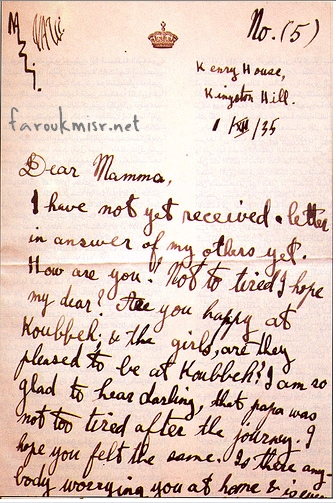 No. (5)
Kenry House,
Kingston Hill.
1/XII/35
faroukmisr.net
Dear Mamma,
I have not yet received a letter
in answer of my others yet.
How are you? Not to tired I hope
my dear? Are you happy at
Koubbeh, & the girls, are they
pleased to be at Koubbeh? I am so
glad to hear darling, that papa was
not too tired after the journey. I
hope you felt the same. Is there any-
body worrying you at home & is